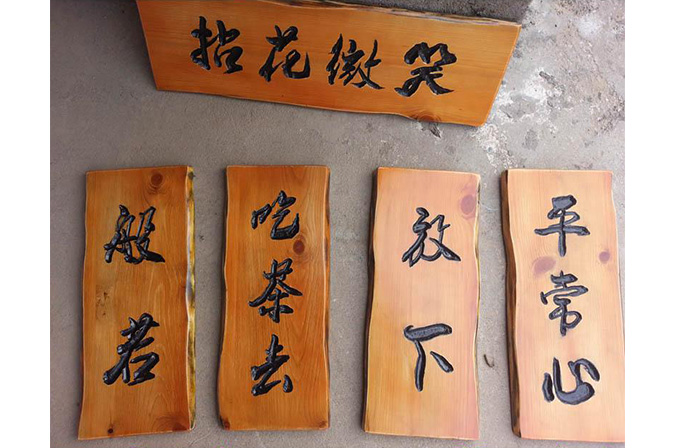 拈花微笑
般若
吃茶去
放下
平常心